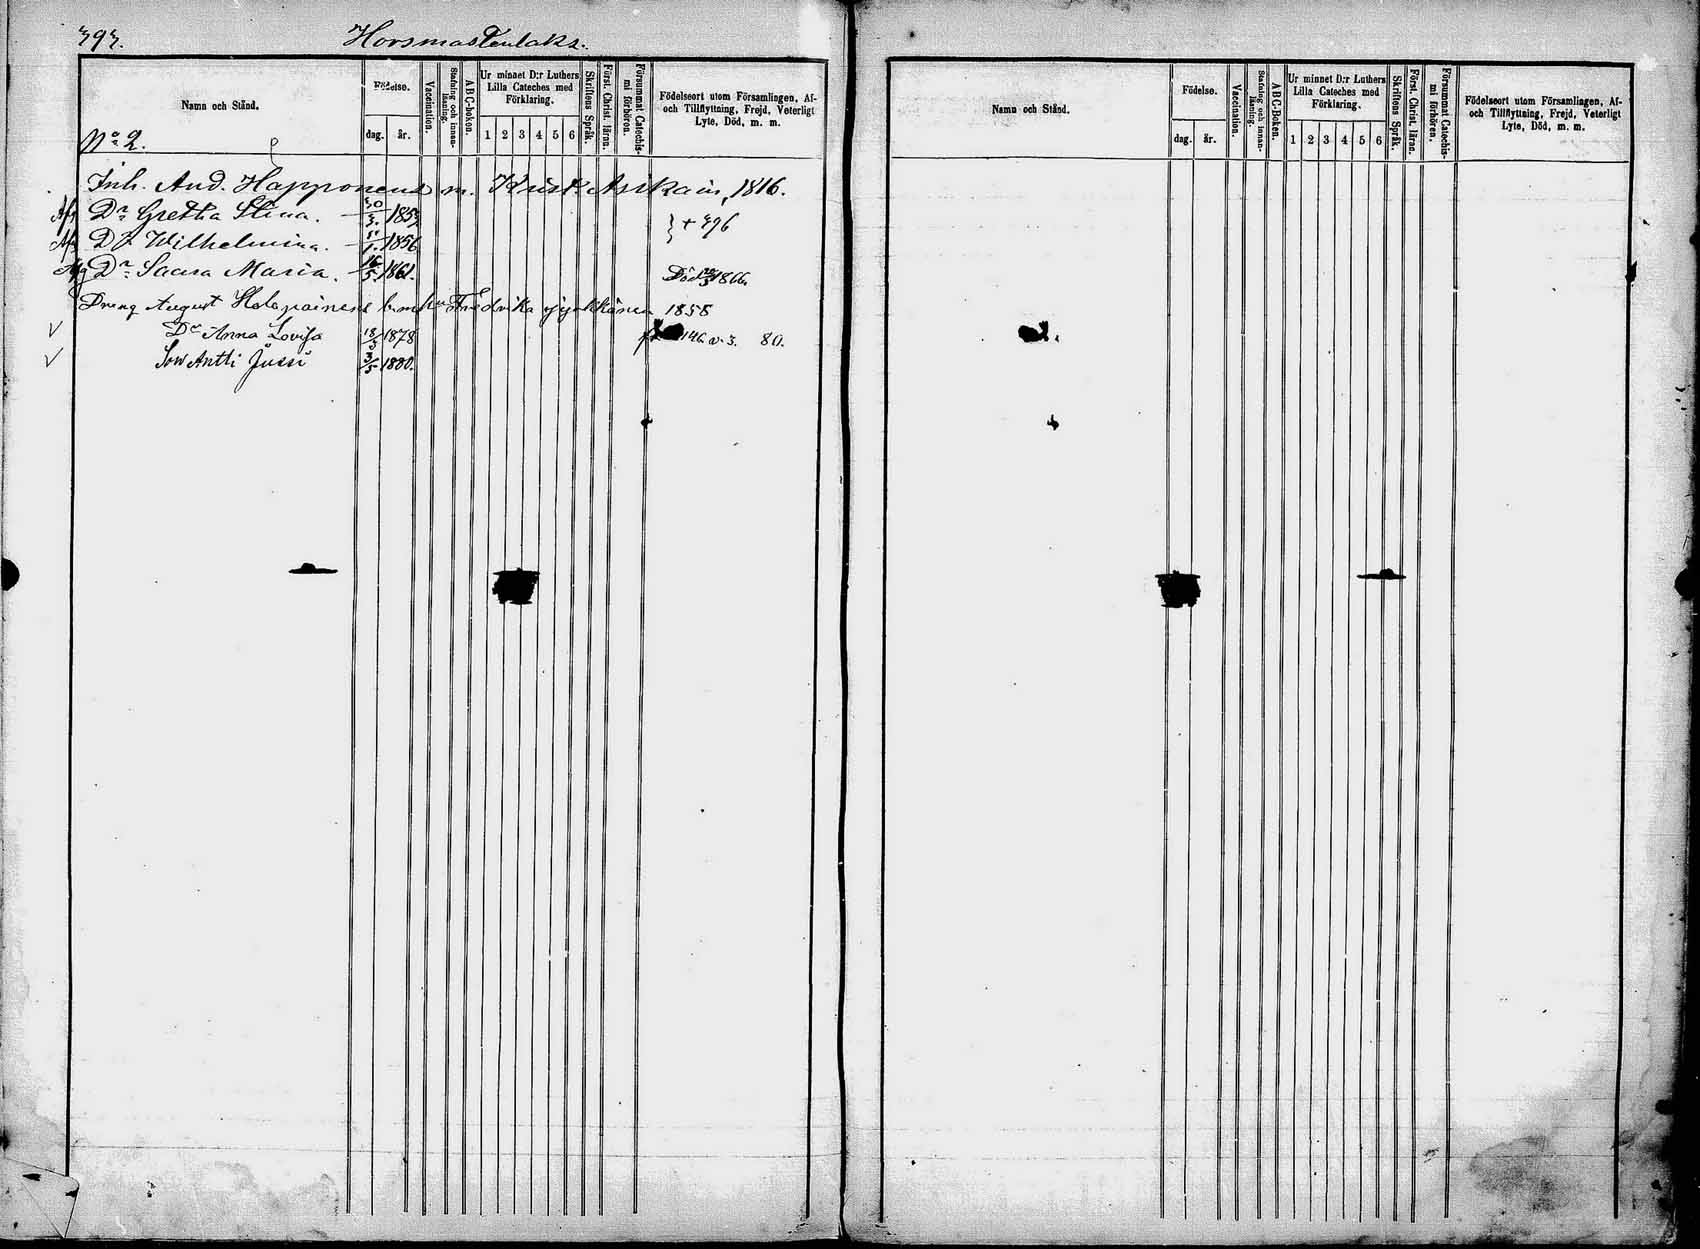 393.
Horsmastenlaks.
Namn och Stånd.
Födelse.
dag. år.
Vaccination.
Stafning och innan-läsning.
A B C-boken.
Ur minnet D:r Luthers
Lilla Cateches med
Förklaring.
1 2 3 4 5 6
Skriftens Språk.
Först. Christ. läran.
Försummat Catechis-
mi förhören.
Födelseort utom Församlingen, Af-
och Tillflyttning, Frejd, Veterligt
Lyte, Död, m. m.
No 2.
Inh. And. Happonens m. Krist. Asikain, 1816.
Afg Dr Gretha Stina. 30/3. 1853
Afg Dr Wilhelmina. /1. 1856 } + 396
Afg Dr Saara Maria. 16/5. 1861. Död 1866.
Dreng August Holopainens Fredrika 1858
Dr Anna Lovisa 18/3 1878 146 v. 3. 80.
Son Antti Jussi 3/5 1880.
Namn och Stånd.
Födelse.
dag. år.
Vaccination.
Stafning och innan-läsning.
A B C-Boken.
Ur minnet D:r Luthers
Lilla Cateches med
Förklaring.
1 2 3 4 5 6
Skriftens Språk.
Först. Christ. läran.
Försummat Catechis-
mi förhören.
Födelseort utom Församlingen, Af-
och Tillflyttning, Frejd, Veterligt
Lyte, Död, m. m.